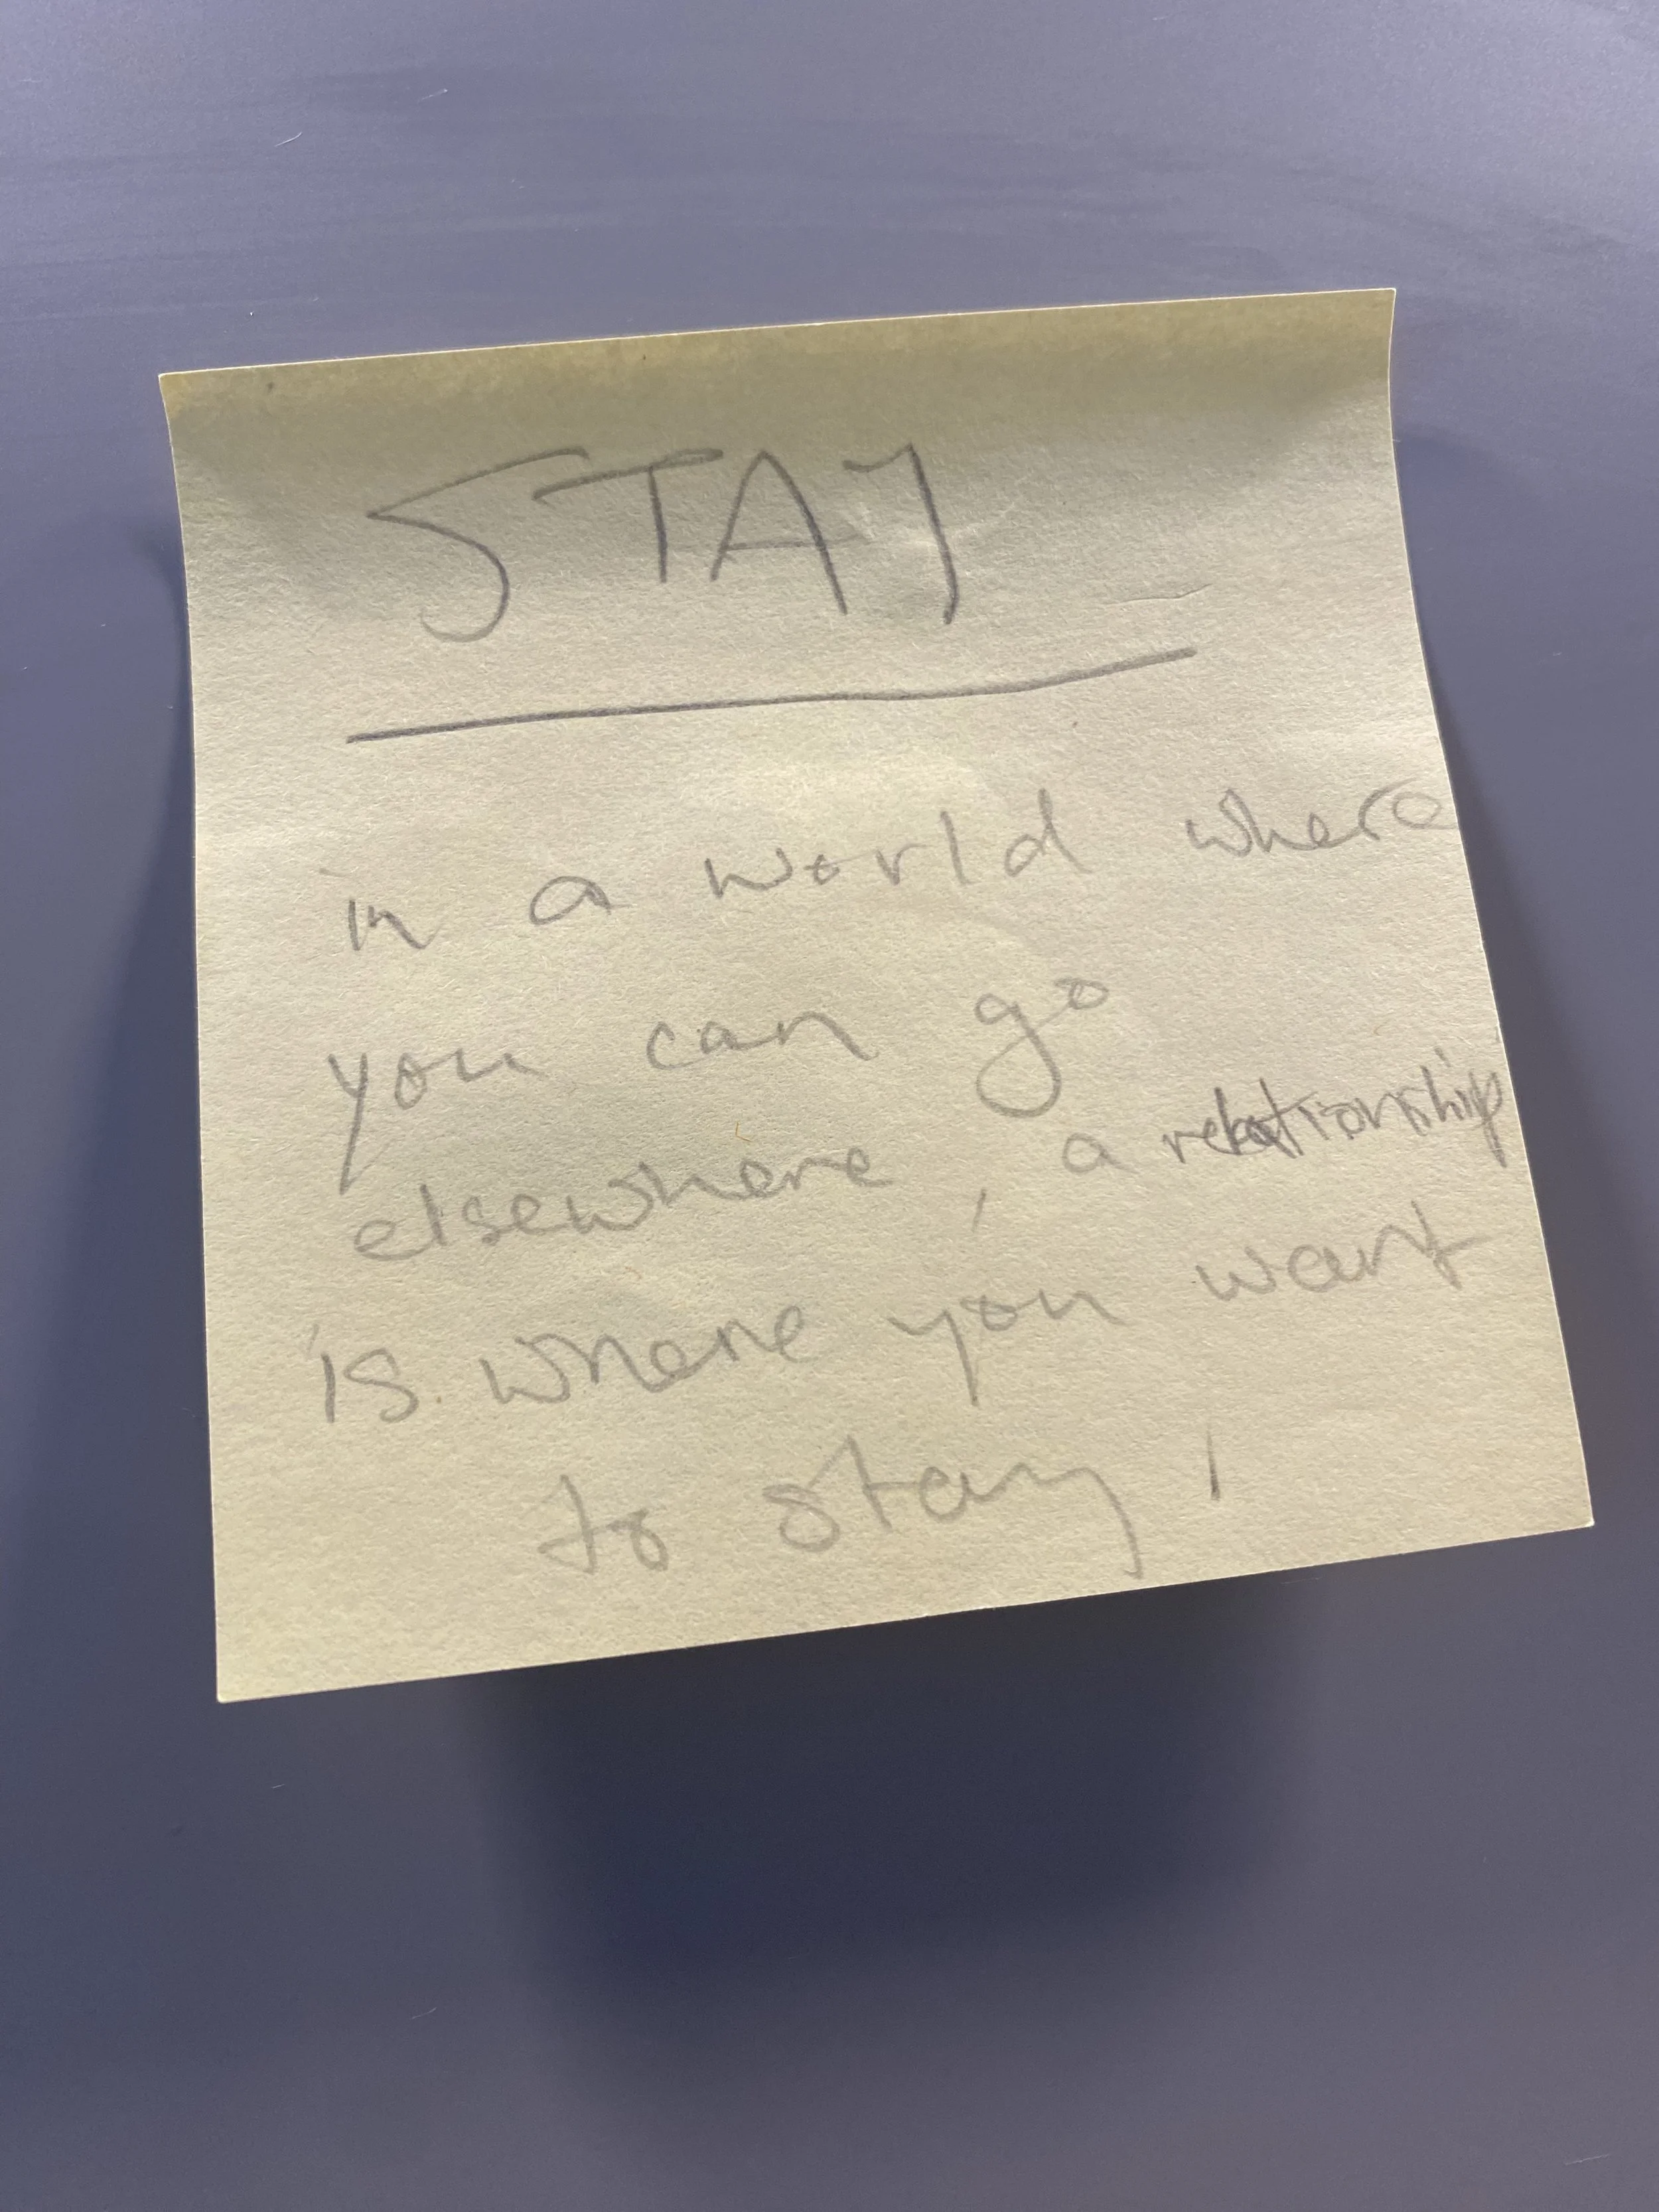 STAY
in a world where
you can go
elsewhere, a relationship
is where you want
to stay,